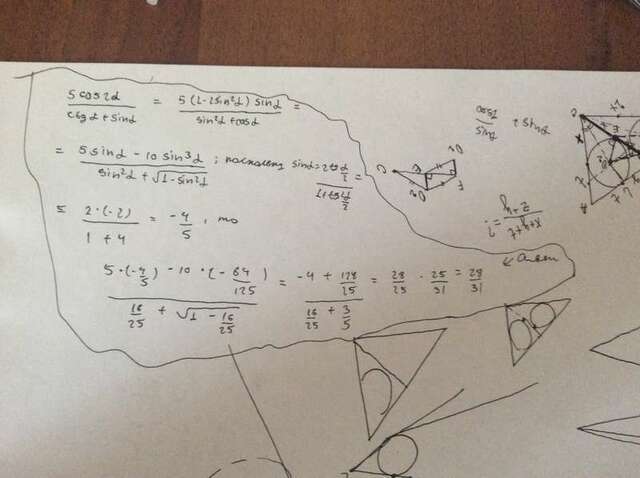 5cos2α / ctgα + sinα = 5(1-2sin²α) sinα / sin²α + cosα =
= 5sinα - 10sin³α / sin²α + √1-sin²α ; поскольку sinα = 2tg α/2 / 1+tg² α/2 =
= 2·(-2) / 1 + 4 = -4/5 , то
5·(-4/5) - 10·(-64/125) / 16/25 + √1 - 16/25 = -4 + 128/25 / 16/25 + 3/5 = 28/25 · 25/31 = 28/31
Ответ
x+y+z / z-y = ?